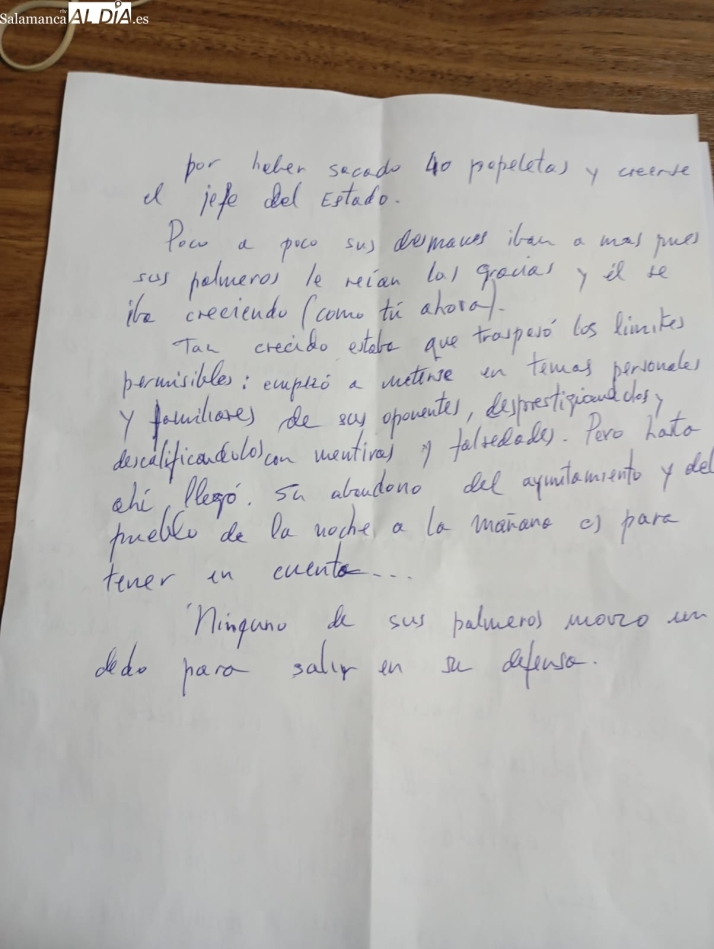 Salamanca rtv AL DÍA .es
por haber sacado 40 papeletas y creerse
el jefe del Estado.
Poco a poco sus desmanes iban a mas pues
sus palmeros le reían las gracias y él se
iba creciendo (como tú ahora).
Tan crecido estaba que traspasó los límites
permisibles: empezó a meterse en temas personales
y familiares de sus oponentes, desprestigiandolos y
descalificandolos con mentiras y falsedades. Pero hasta
ahí llegó. Su abandono del ayuntamiento y del
pueblo de la noche a la mañana es para
tener en cuenta...
Ninguno de sus palmeros movio un
dedo para salir en su defensa.